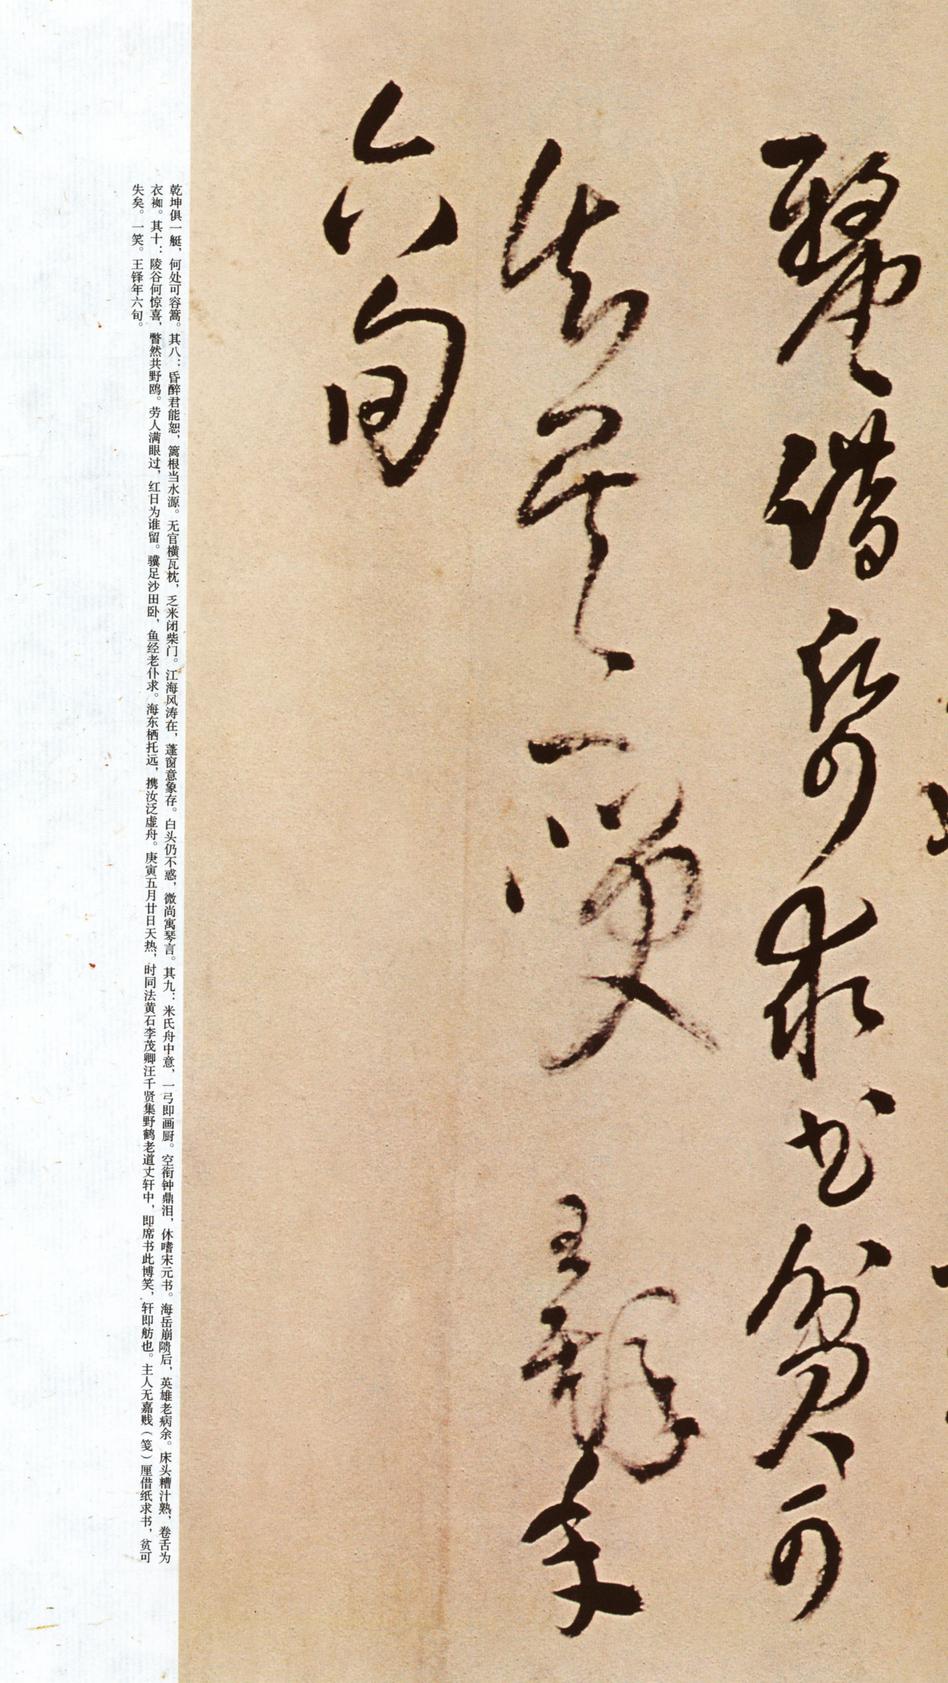 釐借纸求书贫可
失矣一笑王铎年
六旬
乾坤俱一艇，何处可容篙。其八：昏醉君能恕，篱根当水源。无官横瓦枕，乏米闭柴门。江海风涛在，蓬窗意象存。白头仍不惑，微尚寓琴言。其九：米氏舟中意，一弓即画厨。空衔钟鼎泪，休嗜宋元书。海岳崩隤后，英雄老病余。床头糟汁熟，卷舌为
衣袽。其十：陵谷何惊喜，瞥然共野鸥。劳人满眼过，红日为谁留。骥足沙田卧，鱼经老仆求。海东栖托远，携汝泛虚舟。庚寅五月廿日天热，时同法黄石李茂卿汪千贤集野鹤老道丈轩中，即席书此博笑，轩即舫也。主人无嘉贱（笺）厘借纸求书，贫可
失矣。一笑。王铎年六旬。